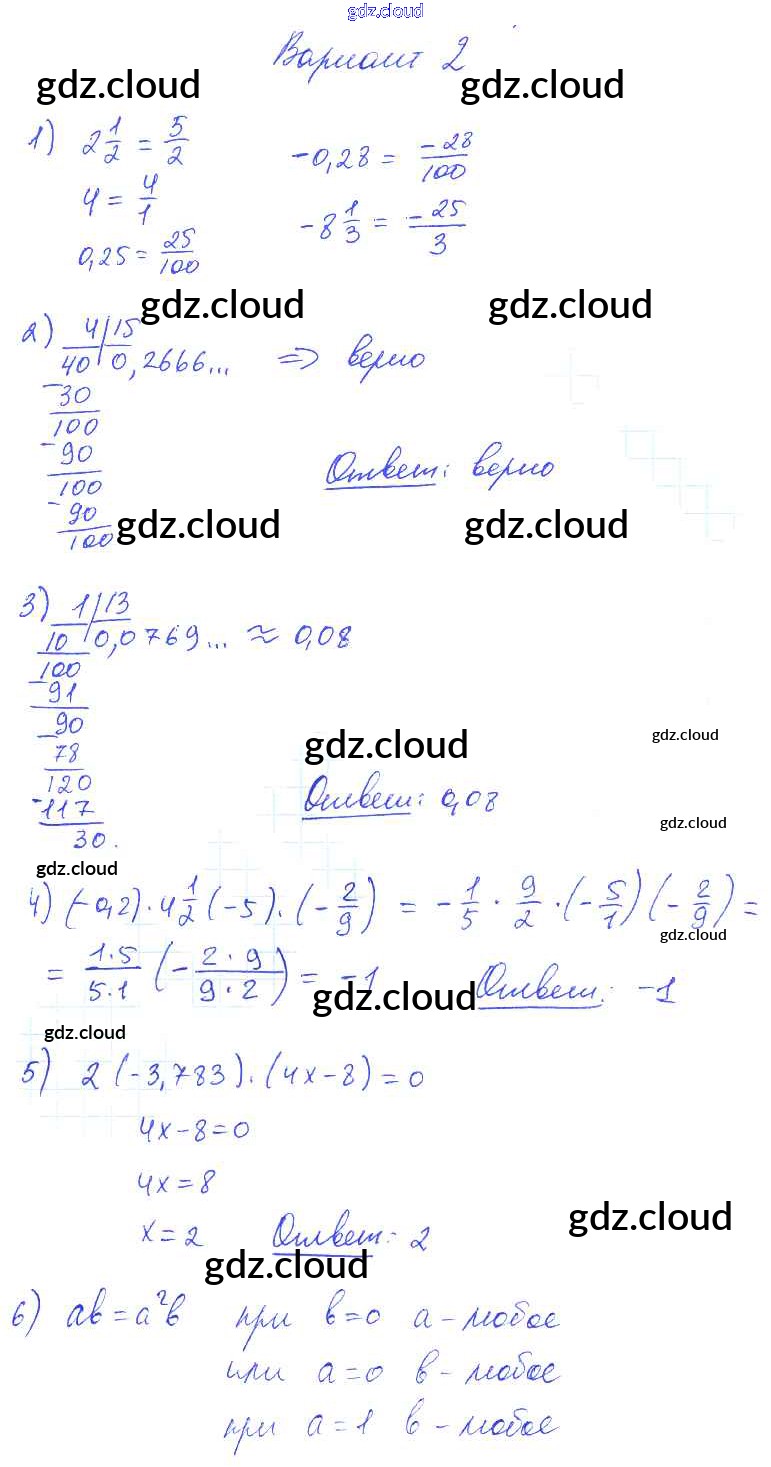 gdz.cloud
Вариант 2
gdz.cloud gdz.cloud
1) 2 1/2 = 5/2 -0,28 = -28/100
4 = 4/1 -8 1/3 = -25/3
0,25 = 25/100
gdz.cloud gdz.cloud
2) 4 | 15
40 0,2666... => верно
-30
100
-90
100
Ответ: верно
-90
100
gdz.cloud gdz.cloud
3) 1 | 13
10 0,0769... ≈ 0,08
100
-91
90
gdz.cloud gdz.cloud
-78
120
Ответ: 0,08
-117
gdz.cloud
30.
gdz.cloud
4) (-0,2) · 4 1/2 (-5) · (-2/9) = -1/5 · 9/2 · (-5/1) (-2/9) =
gdz.cloud
= 1·5/5·1 (-2·9/9·2) = -1 Ответ: -1
gdz.cloud
gdz.cloud
5) 2 (-3,783) · (4x-8) = 0
4x-8=0
4x=8
gdz.cloud
x=2 Ответ: 2
gdz.cloud
6) ab = a²b при b=0 a - любое
или a=0 b - любое
при a=1 b - любое